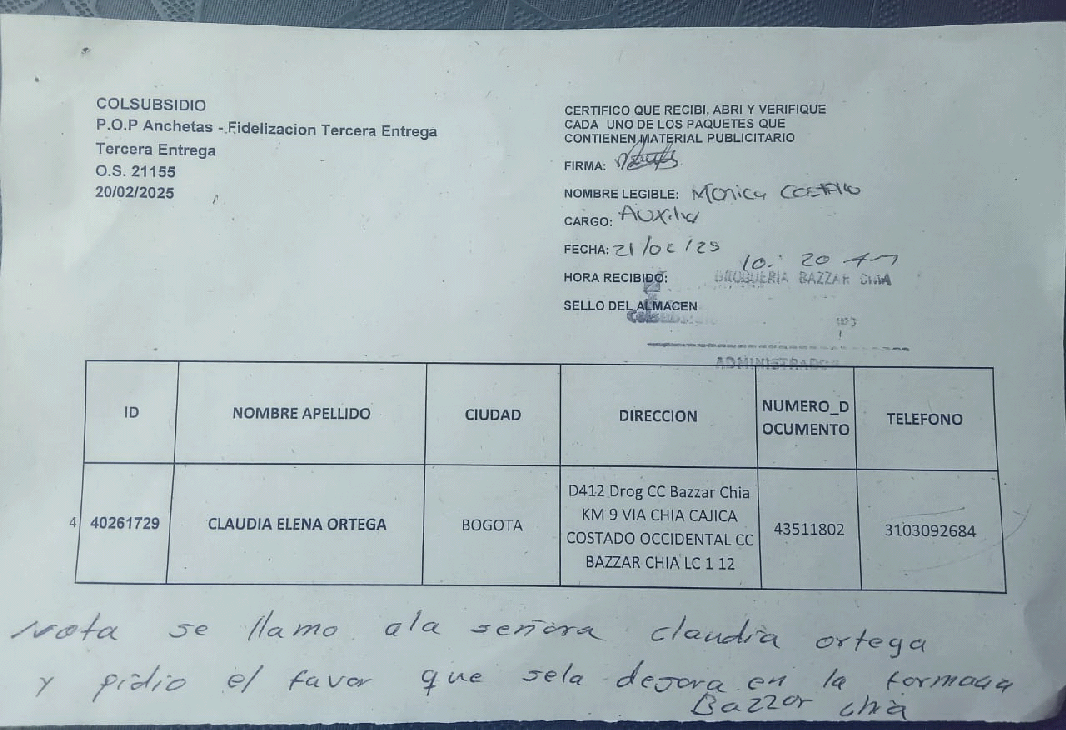 COLSUBSIDIO
P.O.P Anchetas - Fidelizacion Tercera Entrega
Tercera Entrega
O.S. 21155
20/02/2025
CERTIFICO QUE RECIBI, ABRI Y VERIFIQUE
CADA UNO DE LOS PAQUETES QUE
CONTIENEN MATERIAL PUBLICITARIO
FIRMA:
NOMBRE LEGIBLE: Monica
CARGO: Auxilia
FECHA: 21/02/25
HORA RECIBIDO: 10:20 AM
DROGUERIA BAZZAR CHIA
SELLO DEL ALMACEN
ADMINISTRADOR
ID NOMBRE APELLIDO CIUDAD DIRECCION NUMERO_D
OCUMENTO TELEFONO
4 40261729 CLAUDIA ELENA ORTEGA BOGOTA D412 Drog CC Bazzar Chia
KM 9 VIA CHIA CAJICA
COSTADO OCCIDENTAL CC
BAZZAR CHIA LC 1 12 43511802 3103092684
Nota se llamo ala señora claudia ortega
y pidio el favor que sela dejara en la formacia
Bazzar chia